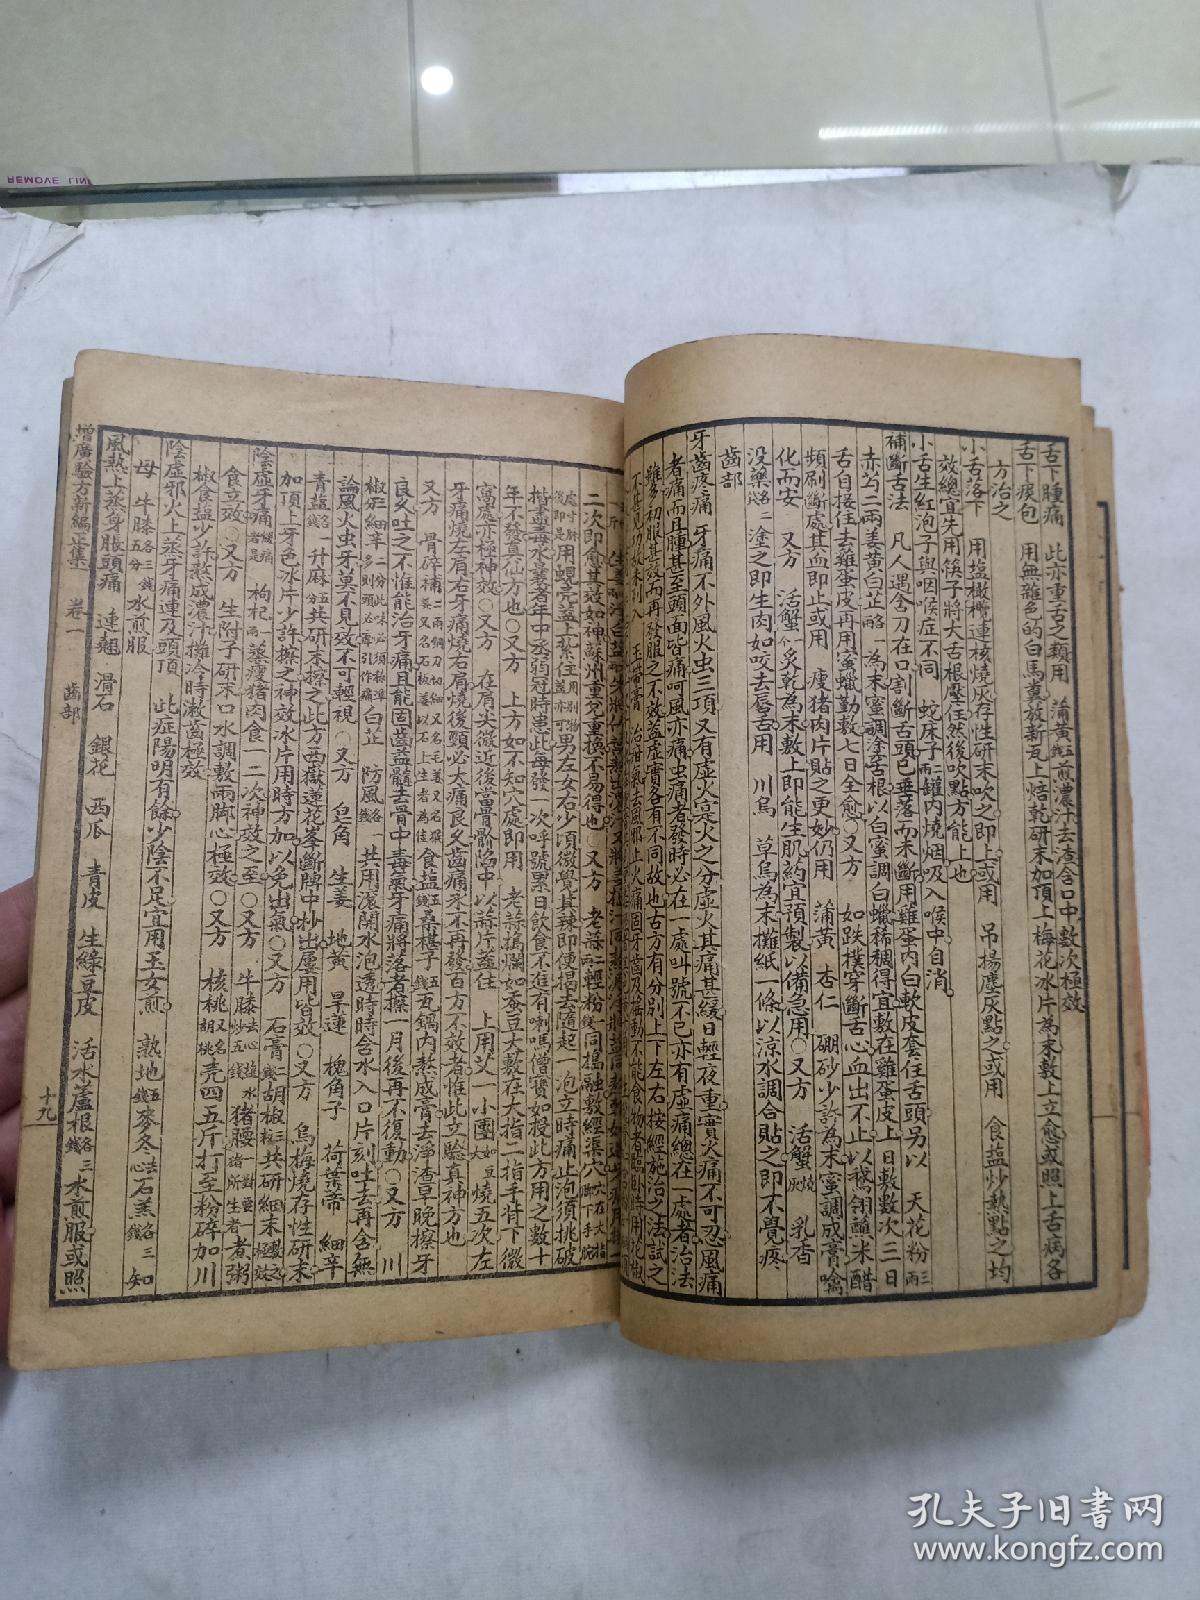 舌下腫痛　此亦重舌之類用　蒲黃煎濃汁去渣含口中數次極效
舌下痰包　用無雜色的白馬糞放新瓦上焙乾研末加頂上梅花冰片為末敷上立愈或照上舌病各
方治之
小舌落下　用盐橄欖連核燒灰存性研末吹之即上或用　吊揚塵灰點之或用　食盐炒熱點之均
效總宜先用筷子將大舌根壓住然後吹點方能上也
小舌生紅泡子與咽喉症不同　蛇床子兩二罐內燒烟吸入喉中自消
補斷舌法　凡人遇含刀在口割斷舌頭已垂落而未斷用雞蛋內白軟皮套住舌頭另以　天花粉兩三
赤勺二兩姜黃白芷兩各　為末蜜調塗舌根以白蜜調白蠟稀稠得宜敷在雞蛋皮上日敷數次三日
舌自接住去雞蛋皮再用蜜蠟勤敷七日全愈○又方　如跌撲穿斷舌心血出不止以鵝翎蘸米醋
頻刷斷處其血即止或用　瘦猪肉片貼之更妙仍用　蒲黃　杏仁　硼砂少許為末蜜調成膏噙
化而安　又方　活蟹一隻炙乾為末敷上即能生肌藥宜預製以備急用○又方　活蟹燒灰　乳香
没藥各二　塗之即生肉如咬去舊舌用　川烏　草烏為末攤紙一條以涼水調合貼之即不覺疼
齒部
牙齒疼痛　牙痛不外風火虫三項又有虛火寔火之分虛火其痛甚緩日輕夜重實火痛不可忍風痛
者痛而且腫甚至頭面皆痛呵風亦痛虫痛者發時必在一處叫號不已亦有虛痛總在一處者治法
雖多初服甚效而再發服之不效蓋虛實各有不同故也古方有分别上下左右按經施治之法試之
二次即愈其效如神蘇州重免重換不易得也　又方　老蒜二兩輕粉一錢同搗融敷經渠穴
用蜆壳蓋上紮住男左女右少頃微覺其辣即便揭去隨起一泡立時痛止泡須挑破
揩盡毒水曩者年中丞弱冠時患此每發一次呼號累日飲食不進有喇嘛僧寶如授此方用之數十
年不發真仙方也○又方　上方如不知穴處即用　老蒜搗爛如蚕豆大敷在大指一指手背下微
窩處亦極神效○又方　在肩尖微近後當骨節陷中以蒜片蓋住　上用艾一小團燒五次左
牙痛燒左肩右牙痛燒右肩燒後頸必大痛良久齒痛永不再發百方不效者惟此立驗真神方也
又方　骨碎補二兩　食盐五錢桑椹子五錢瓦鍋內熬成膏去淨渣早晚擦牙
良久吐之不惟能治牙痛且能固齒益髓去骨中毒氣牙痛將落者擦一月後再不復動○又方　川
椒細辛　白芷　防風各一　共用滚開水泡透時時含水入口片刻吐去再含無
論風火虫牙莫不見效不可輕視　○又方　皂角　生姜　地黃　旱蓮　槐角子　荷葉蒂　細辛
青盐各一升麻五分共研末擦之此方西嶽蓮花峯斷牌中抄出屢用皆效○又方　烏梅燒存性研末
加頂上牙色冰片少許擦之神效冰片用時方加以免出氣○又方　石膏二錢胡椒三粒共研細末擦之極效
陰虛牙痛緩痛者是　枸杞二兩蒸瘦猪肉食一二次神效之至○又方　牛膝　猪腰　煮粥
食立效○又方　生附子研末口水調敷兩脚心極效○又方　核桃又名胡桃壳四五斤打至粉碎加川
椒食盐少許熬成濃汁攤冷時漱齒極效
陰虛邪火上蒸牙痛連及頭頂　此症陽明有餘少陰不足宜用玉女煎　熟地五錢麥冬去心石羔各三錢　知
母　牛膝各一錢五分水煎服
風熱上蒸牙脹頭痛　連翹　滑石　銀花　西瓜　青皮　生綠豆皮　活水蘆根各三錢水煎服或照
增廣驗方新編正集　卷一　齒部　十九
孔夫子旧書网
www.kongfz.com
REMOVE LIN